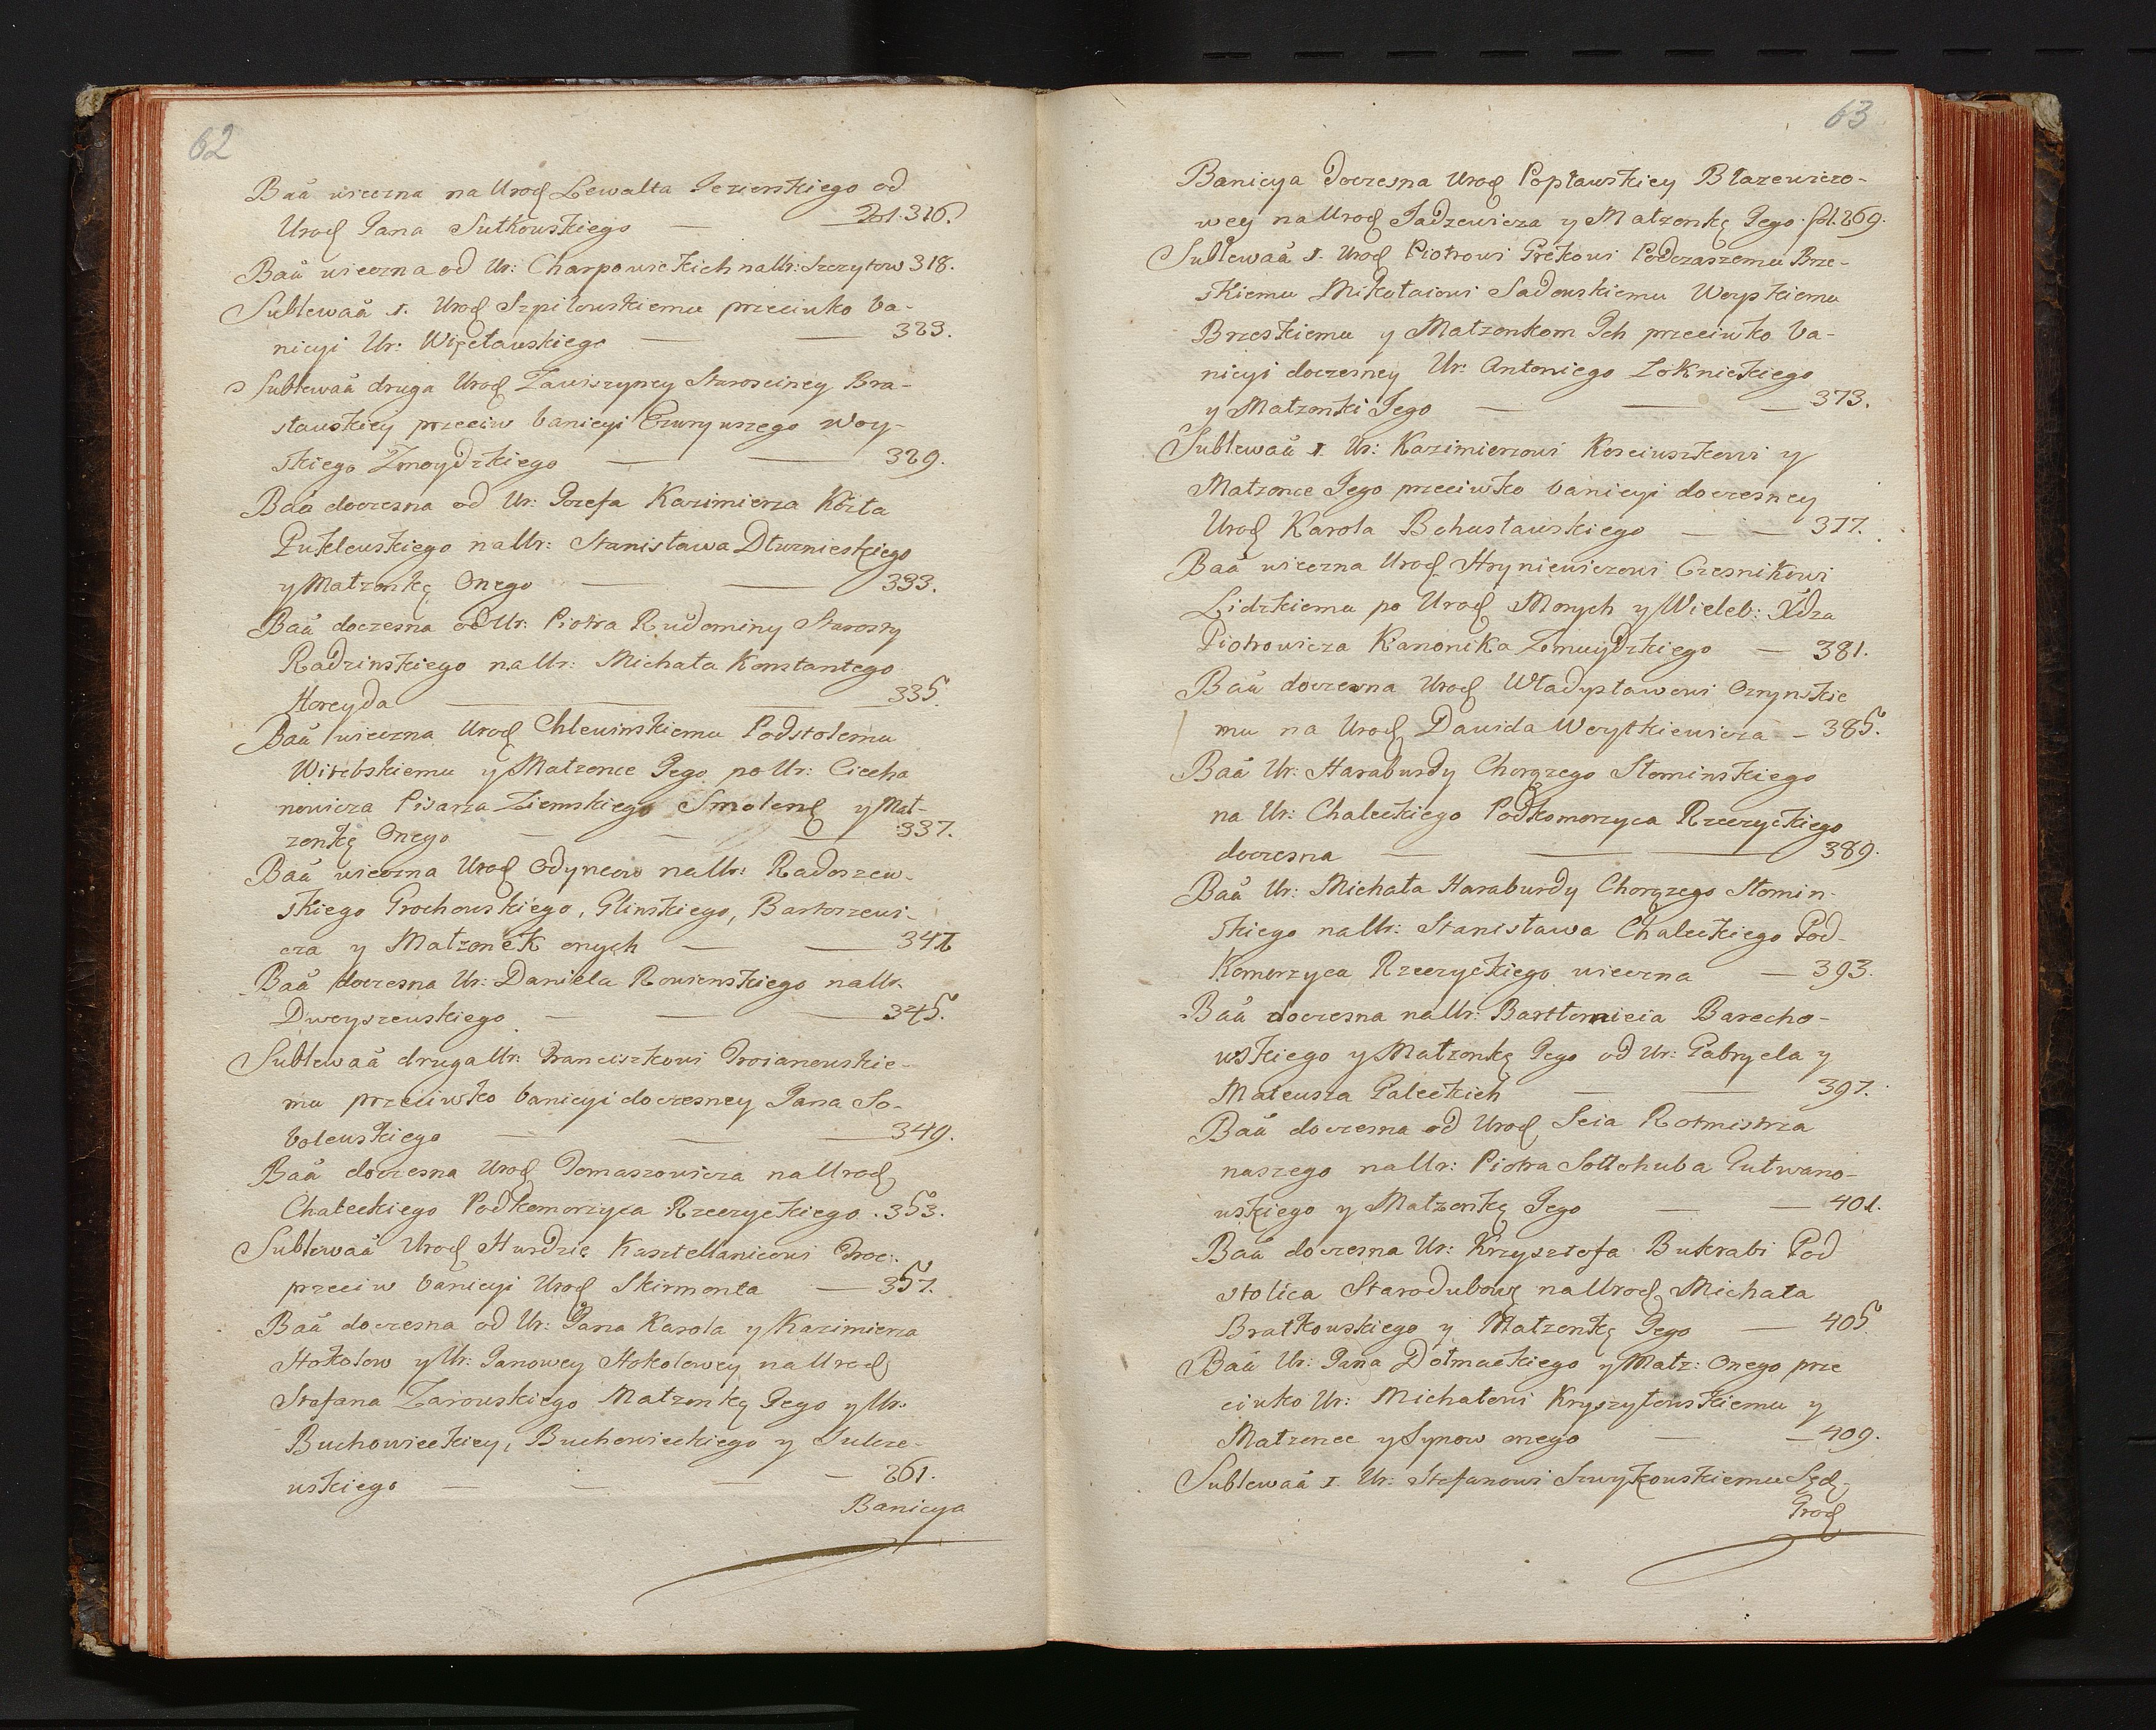 62
Baã wieczna na Urod Lewalta Jezierskiego od
Urod Jana Sutkowskiego — fol. 316.
Baã wieczna od Ur: Charpowickich na Ur: Szczytow 318.
Sublewaã 1. Urod Szpilowskiemu przeciwko ba-
nicyi Ur: Więcławskiego — — 323.
Sublewaã druga Urod Zawiszyney Starosciney Bra-
sławskiey przeciw banicyi Eurypszego Woy-
skiego Zmoydzkiego — — 329.
Baã doczesna od Ur: Jozefa Kazimierza Kozła
Puklewskiego na Ur: Stanisława Dłuznieskiego
y Małzonkę Onego — — 333.
Baã doczesna od Ur: Piotra Rudominy Starosty
Radzinskiego na Ur: Michała Konstantego
Horeyda — — — 335.
Baã wieczna Urod Chlewinskiemu Podstolemu
Witebskiemu y Małzonce Jego po Ur: Ciecha
nowicza Pisarza Ziemskiego Smolenſ y Mał-
zonkę Onego — — — 337.
Baã wieczna Urod Odyncow na Ur: Radoszew-
skiego Grochowskiego, Glinskiego, Bartoszewi-
cza y Małzonek onych — — 341
Baã doczesna Ur: Daniela Rowienskiego na Ur.
Dweyszewskiego — — — 345.
Sublewaã druga Ur: Franciszkowi Troianowskie-
mu przeciwko banicyi doczesney Jana So-
bolewskiego — — — 349.
Baã doczesna Urod Tomaszowicza na Urod
Chaleckiego Podkomorzyca Rzeczyckiego . 353.
Sublewaã Urod Hurdzie Kasztellanicowi Troc:
przeciw banicyi Urod Skirmonta — 357.
Baã doczesna od Ur: Jana Karola y Kazimierza
Hokolow y Ur: Janowey Hokolowey na Urod
Stefana Zarowskiego Małzonkę Jego y Ur.
Buchowieckiey, Buchowieckiego y Sulcze-
wskiego — — — — 261.
Banicya
63
Banicya doczesna Urod Popławskiey Błazewiczo-
wey na Urod Jadzewicza y Małzonkę Jego . fol. 269.
Sublewaã 1. Urod Piotrowi Grekowi Podczaszemu Brze-
skiemu Mikołaiowi Sadowskiemu Woyskiemu
Brzeskiemu y Małzonkom Ich przeciwko ba-
nicyi doczesney Ur: Antoniego Łoknickiego
y Małzonki Jego — — — 373.
Sublewaã 1. Ur: Kazimierzowi Kosciuszkowi y
Małzonce Jego przeciwko banicyi doczesney
Urod Karola Bohusławskiego — — 377.
Baã wieczna Urod Hryniewiczowi Czesnikowi
Lidzkiemu po Urod Morych y Wieleb: Xdza
Piotrowicza Kanonika Zmuydzkiego — 381.
Baã doczesna Urod Władysławowi Ozynskie
mu na Urod Dawida Werytkiewicza – 385.
Baã Ur: Haraburdy Chorązego Słominskiego
na Ur: Chaleckiego Podkomorzyca Rzeczyckiego
doczesna — — — 389.
Baã Ur: Michała Haraburdy Chorązego Słomin-
skiego na Ur: Stanisława Chaleckiego Pod-
Komorzyca Rzeczyckiego wieczna — 393.
Baã doczesna na Ur: Bartłomieia Barecho-
wskiego y Małzonkę Jego od Ur: Gabryela y
Mateusza Galeckich — — 397.
Baã doczesna od Urod Scia Rotmistrza
naszego na Ur: Piotra Sollohuba Gutwano-
wskiego y Małzonkę Jego — — 401.
Baã doczesna Ur: Krzysztofa Bukrabi Pod
stolica Starodubowſ na Urod Michała
Bratkowskiego y Małzonkę Jego — 405.
Baã Ur: Jana Dołmackiego y Małz: Onego prze
ciwko Ur: Michałowi Kryszyłowskiemu y
Małzonce y Synow onego — — 409.
Sublewaã 1. Ur: Stefanowi Szwykowskiemu Sęd:
Grod